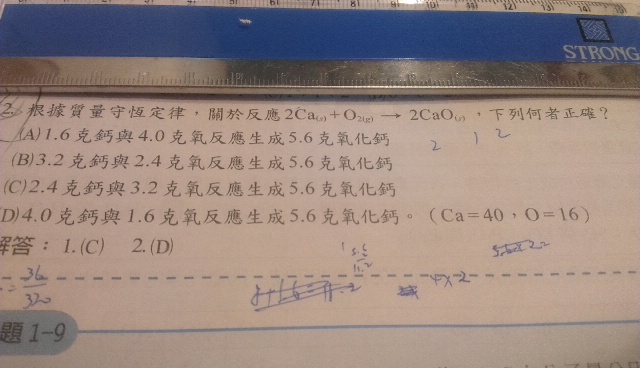 STRONG
2. 根據質量守恆定律，關於反應2Ca(s)+O2(g) → 2CaO(s)，下列何者正確？
(A)1.6克鈣與4.0克氧反應生成5.6克氧化鈣
2 1 2
(B)3.2克鈣與2.4克氧反應生成5.6克氧化鈣
(C)2.4克鈣與3.2克氧反應生成5.6克氧化鈣
(D)4.0克鈣與1.6克氧反應生成5.6克氧化鈣。（Ca=40，O=16）
解答：1.(C) 2.(D)
5.6
11.2
4×2
36
320
題 1-9